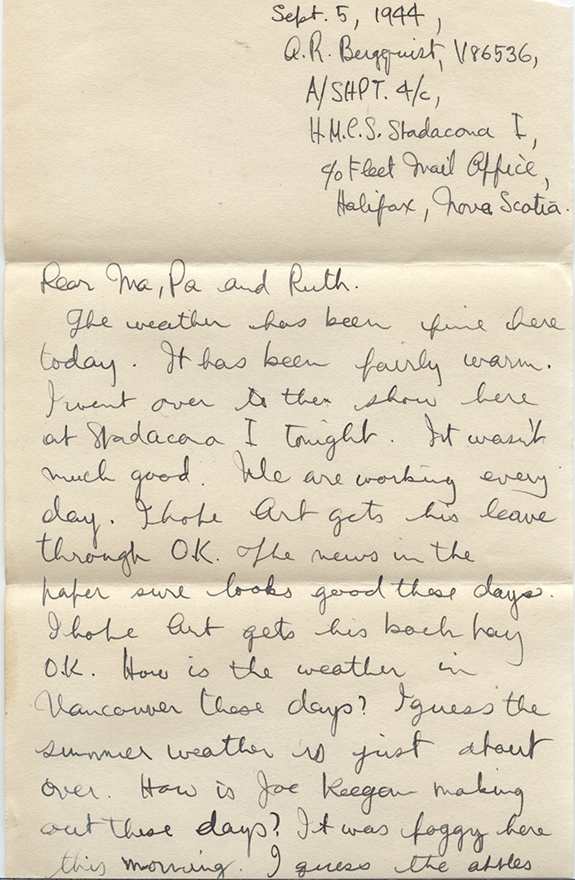 Sept. 5, 1944,
A.R. Bergquist, V86536,
A/SHPT. 4/c,
H.M.C.S. Stadacona I,
c/o Fleet Mail Office,
Halifax, Nova Scotia.
Dear Ma, Pa and Ruth.
The weather has been fine here
today. It has been fairly warm.
I went over to the show here
at Stadacona I tonight. It wasn't
much good. We are working every
day. I hope Art gets his leave
through O.K. The news in the
paper sure looks good these days.
I hope Art gets his back pay
O.K. How is the weather in
Vancouver these days? I guess the
summer weather is just about
over. How is Joe Keegan making
out these days? It was foggy here
this morning. I guess the apples